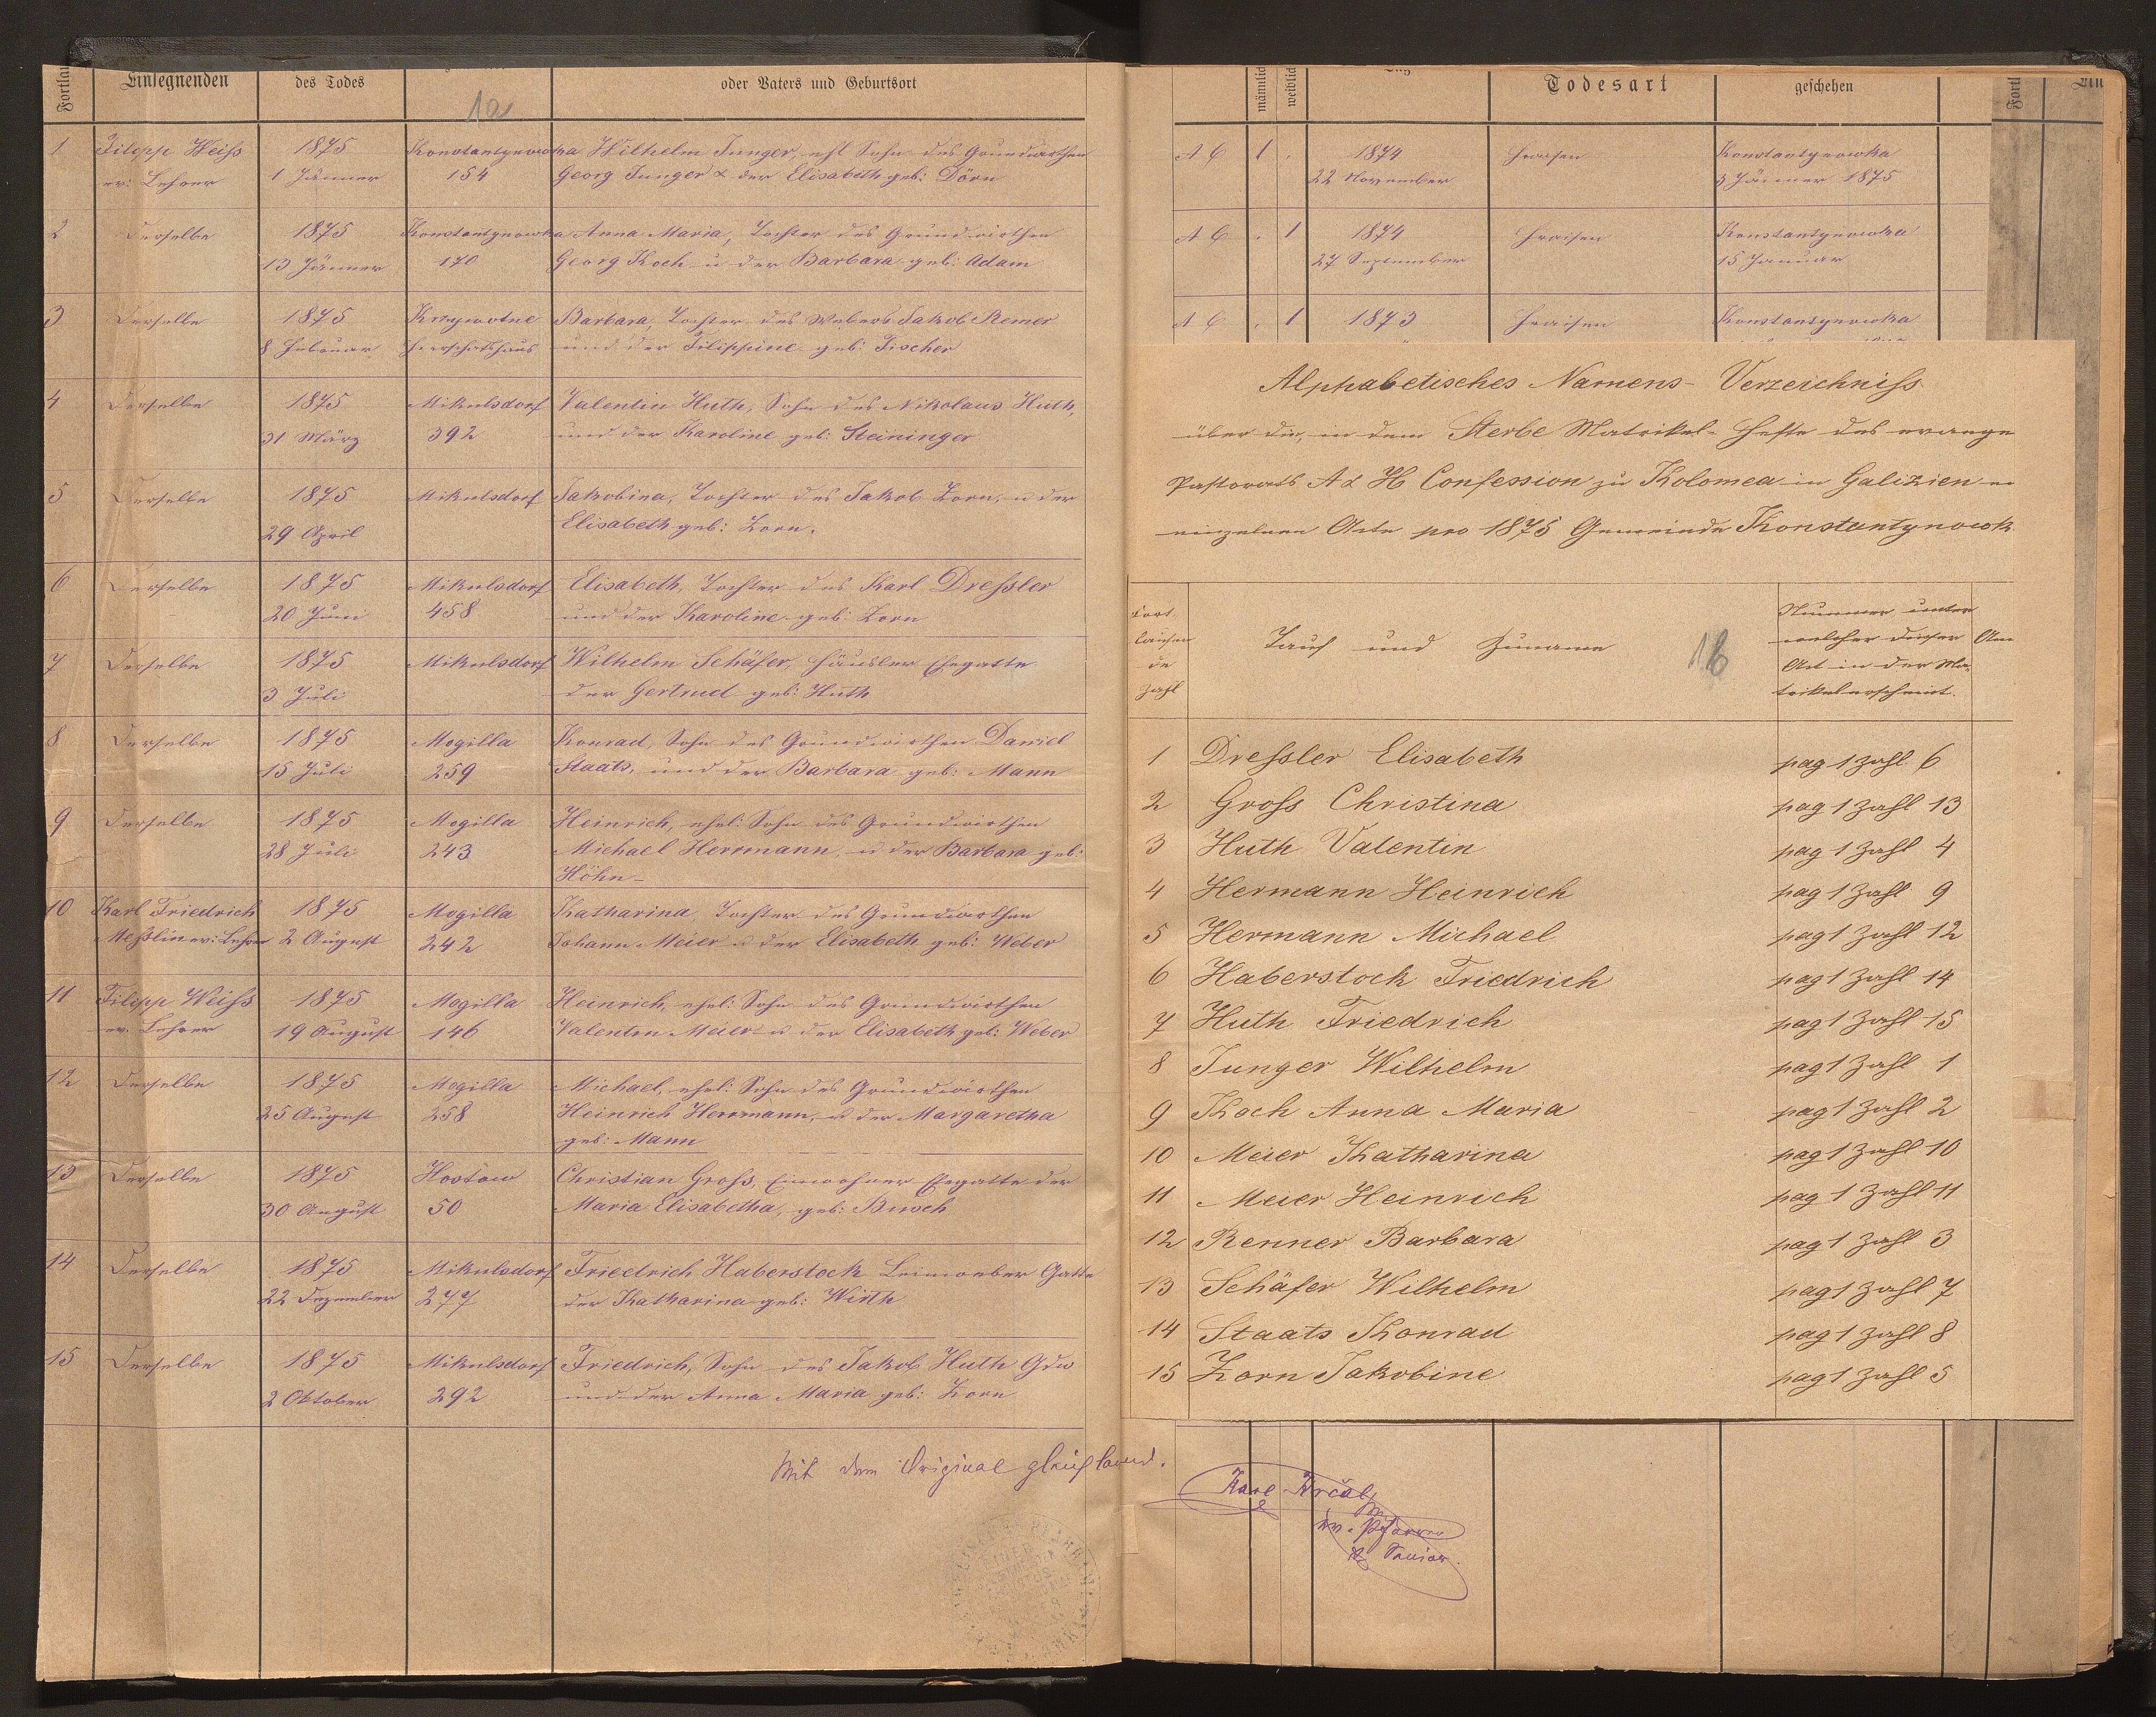 Fortlau
Einsegnenden
des Todes
oder Vaters und Geburtsort
1a
1 Filipp Weiss 1875 Konstantynowka Wilhelm Junger, ehl Sohn des Grundwirthen
ev: Lehrer 1 Jänner 154 Georg Junger & der Elisabeth geb: Dörn
2 Derselbe 1875 Konstantynowka Anna Maria, Tochter des Grundwirthen
13 Jänner 170 Georg Koch u der Barbara geb: Adam
3 Derselbe 1875 Krzyworwne Barbara, Tochter des Webers Jakob Remer
8 Februar Herrschftshaus und der Filippine geb: Fischer
4 Derselbe 1875 Mikulsdorf Valentin Huth, Sohn des Nikolaus Huth,
31 März 392 und der Karoline geb: Steininger
5 Derselbe 1875 Mikulsdorf Jakobina, Tochter des Jakob Zorn, u der
29 April Elisabeth geb: Zorn.
6 Derselbe 1875 Mikulsdorf Elisabeth, Tochter des Karl Dressler
20 Juni 458 und der Karoline geb: Zorn
7 Derselbe 1875 Mikulsdorf Wilhelm Schäfer, Häusler Ehegatte
3 Juli der Gertrud geb: Huth
8 Derselbe 1875 Mogilla Konrad, Sohn des Grundwirthen Daniel
15 Juli 259 Staats, und der Barbara geb: Mann
9 Derselbe 1875 Mogilla Heinrich, ehel: Sohn des Grundwirthen
28 Juli 243 Michael Herrmann, u der Barbara geb:
Höhn
10 Karl Friedrich 1875 Mogilla Katharina, Tochter des Grundwirthen
Messlin ev: Lehrer 2 August 242 Johann Meier u der Elisabeth geb: Weber
11 Filipp Weiss 1875 Mogilla Heinrich, ehel: Sohn des Grundwirthen
ev. Lehrer 19 August 146 Valentin Meier u der Elisabeth geb: Weber
12 Derselbe 1875 Mogilla Michael, ehel: Sohn des Grundwirthen
25 August 258 Heinrich Herrmann, u der Margaretha
geb: Mann
13 Derselbe 1875 Hostow Christian Gross, Einwohner Ehegatte der
30 August 50 Maria Elisabetha, geb: Busch
14 Derselbe 1875 Mikulsdorf Friedrich Haberstock Leinweber Gatte
22 Dezember 277 der Katharina geb: Wirth
15 Derselbe 1875 Mikulsdorf Friedrich, Sohn des Jakob Huth Gdw
2 Oktober 292 und der Anna Maria geb: Zorn
Mit dem Original gleichlautend.
männlich
weiblich
Todesart
geschehen
Fortl
Ein
A C 1 . 1874 Fraisen Konstantynowka
22 November 3 Jänner 1875
A C . 1 1874 Fraisen Konstantynowka
27 September 15 Januar
A C . 1 1873 Fraisen Konstantynowka
Alphabetisches Namens-Verzeichniss
über die, in dem Sterbe Matrikel-Hefte des evange
Pastorats A & H Confession zu Kolomea in Galizien
einzelnen Acte pro 1875 Gemeinde Konstantynowk
Fort
laufen
de
Zahl
Tauf und Zuname
1b
Nummer unter
welcher dieser
Act in der Ma-
trikel erscheint.
An
1 Dressler Elisabeth pag 1 Zahl 6
2 Gross Christina pag 1 Zahl 13
3 Huth Valentin pag 1 Zahl 4
4 Hermann Heinrich pag 1 Zahl 9
5 Hermann Michael pag 1 Zahl 12
6 Haberstock Friedrich pag 1 Zahl 14
7 Huth Friedrich pag 1 Zahl 15
8 Junger Wilhelm pag 1 Zahl 1
9 Koch Anna Maria pag 1 Zahl 2
10 Meier Katharina pag 1 Zahl 10
11 Meier Heinrich pag 1 Zahl 11
12 Renner Barbara pag 1 Zahl 3
13 Schäfer Wilhelm pag 1 Zahl 7
14 Staats Konrad pag 1 Zahl 8
15 Zorn Jakobine pag 1 Zahl 5
Karl Krčal
ev. Pfarrer
& Senior.